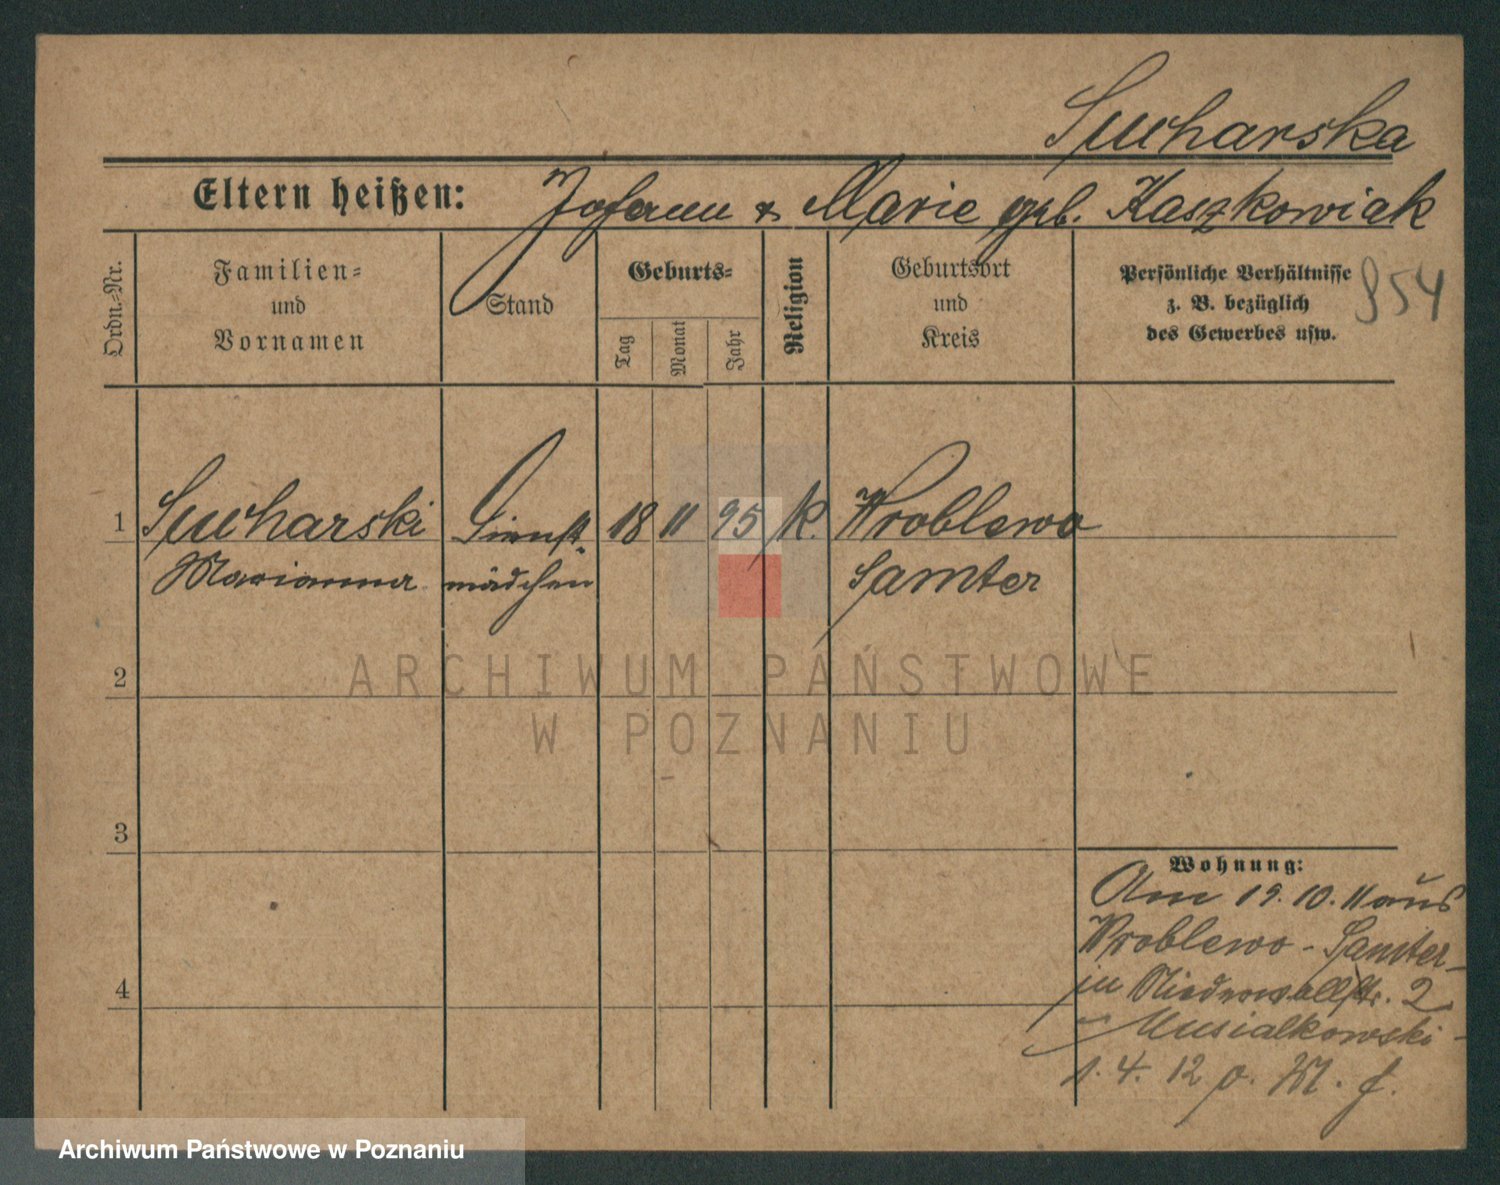 Sucharska
Eltern heißen: Johann & Marie geb. Kaszkowiak
Ordn.-Nr.
Familien-
und
Vornamen
Stand
Geburts-
Tag
Monat
Jahr
Religion
Geburtsort
und
Kreis
Persönliche Verhältnisse
z. B. bezüglich
des Gewerbes usw.
954
1 Sucharski Dienst- 18 11 95 K. Wroblewo
Marianna mädchen Samter
2
ARCHIWUM PAŃSTWOWE
W POZNANIU
3
Wohnung:
Am 19. 10. 11 aus
Wroblewo - Samter
in Niederwallstr. 2
Musialkowski
4
1. 4. 12
Archiwum Państwowe w Poznaniu